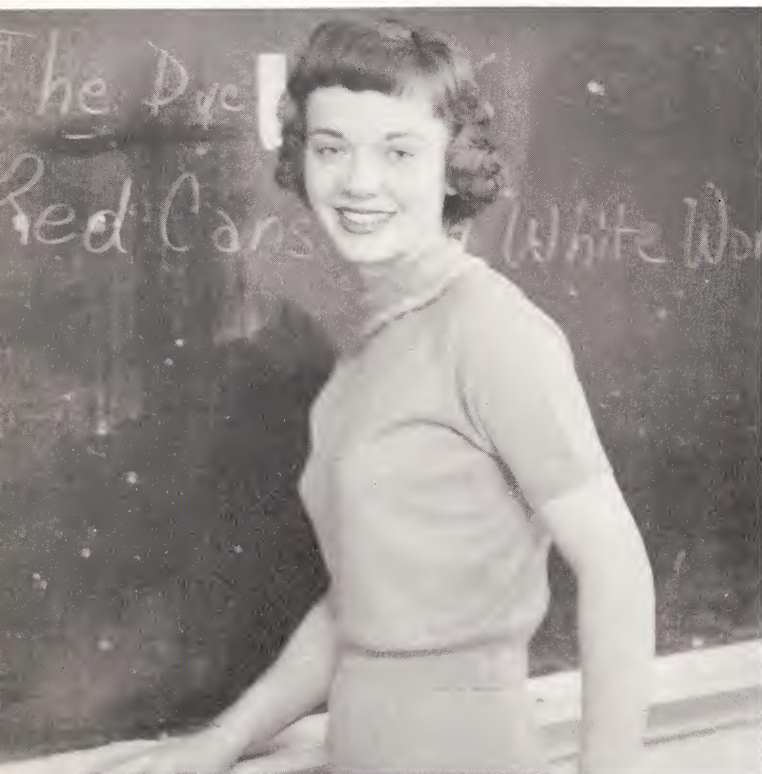 The Duc
Red Cans White Wor